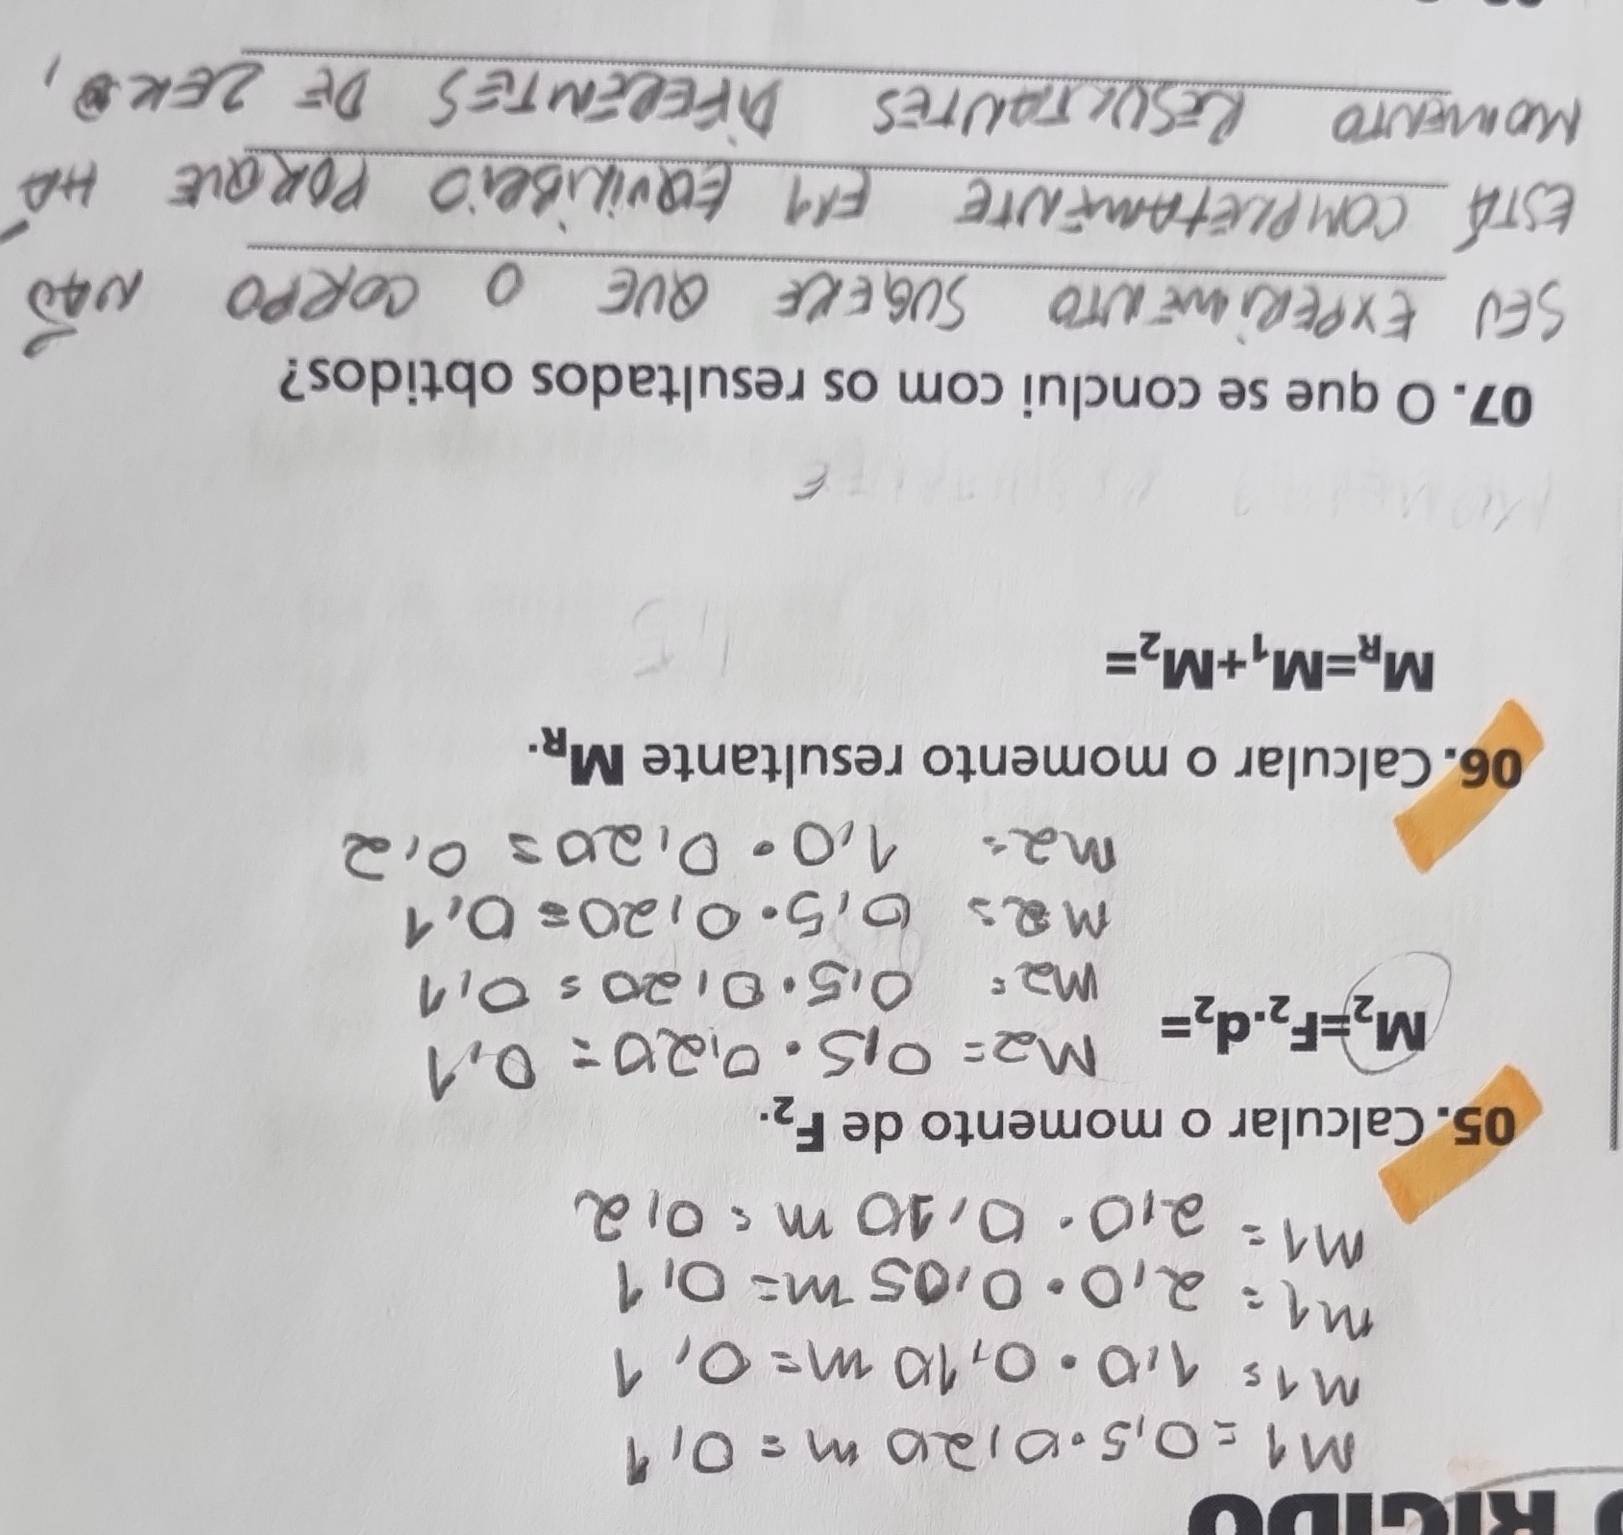 RÍGIDO
M1 = 0,5 . 0,20 m = 0,1
M1 = 1,0 . 0,10 m = 0,1
M1 = 2,0 . 0,05 m = 0,1
M1 = 2,0 . 0,10 m = 0,2
05. Calcular o momento de F₂.
M₂=F₂.d₂= M2 = 0,5 . 0,20 = 0,1
M2 = 0,5 . 0,20 = 0,1
M2 = 0,5 . 0,20 = 0,1
M2 = 1,0 . 0,20 = 0,2
06. Calcular o momento resultante M_R.
M_R=M₁+M₂=
07. O que se conclui com os resultados obtidos?
SEU EXPERIMENTO SUGERE QUE O CORPO NÃO
ESTÁ COMPLETAMENTE EM EQUILIBRIO PORQUE HÁ
MOMENTO RESULTANTES DIFERENTES DE ZERO,